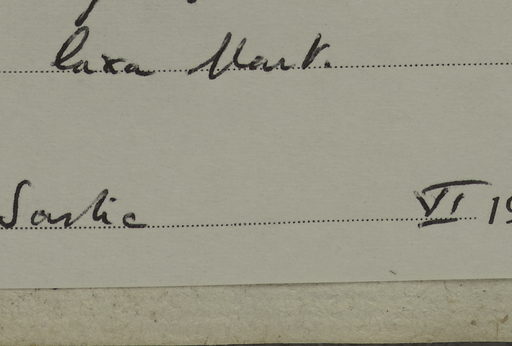 laxa Mart.
Sastic VI 19